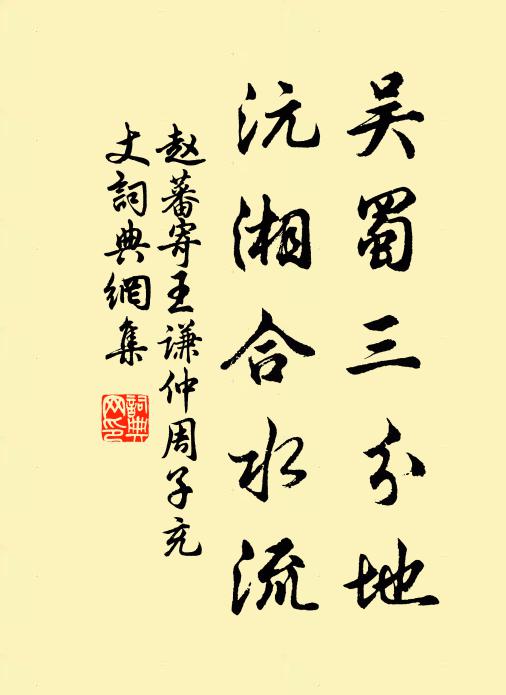 吴蜀三分地
沅湘合水流
赵蕃寄王谦仲周子充
丈詞典網集
詞典
网印